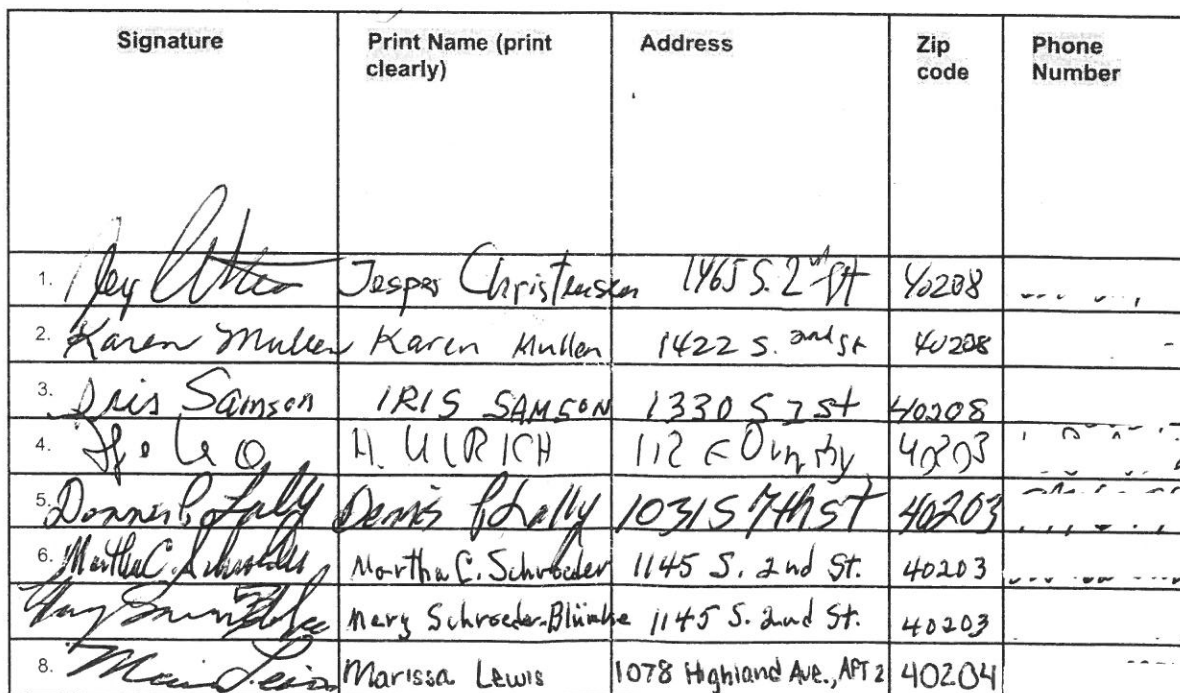 Signature Print Name (print clearly) Address Zip code Phone Number
1. Jesper Christensen 1465 S. 2nd St 40208
2. Karen Mullen Karen Mullen 1422 S. 2nd St 40208
3. Iris Samson IRIS SAMSON 1330 S 2 St 40208
4. H. ULRICH 112 E 40203
5. Dennis P Lally 1031 S 7th St 40203
6. Martha C. Schroeder Martha C. Schroeder 1145 S. 2nd St. 40203
Mary Schroeder-Blümke 1145 S. 2nd St. 40203
8. Marissa Lewis 1078 Highland Ave., APT 2 40204